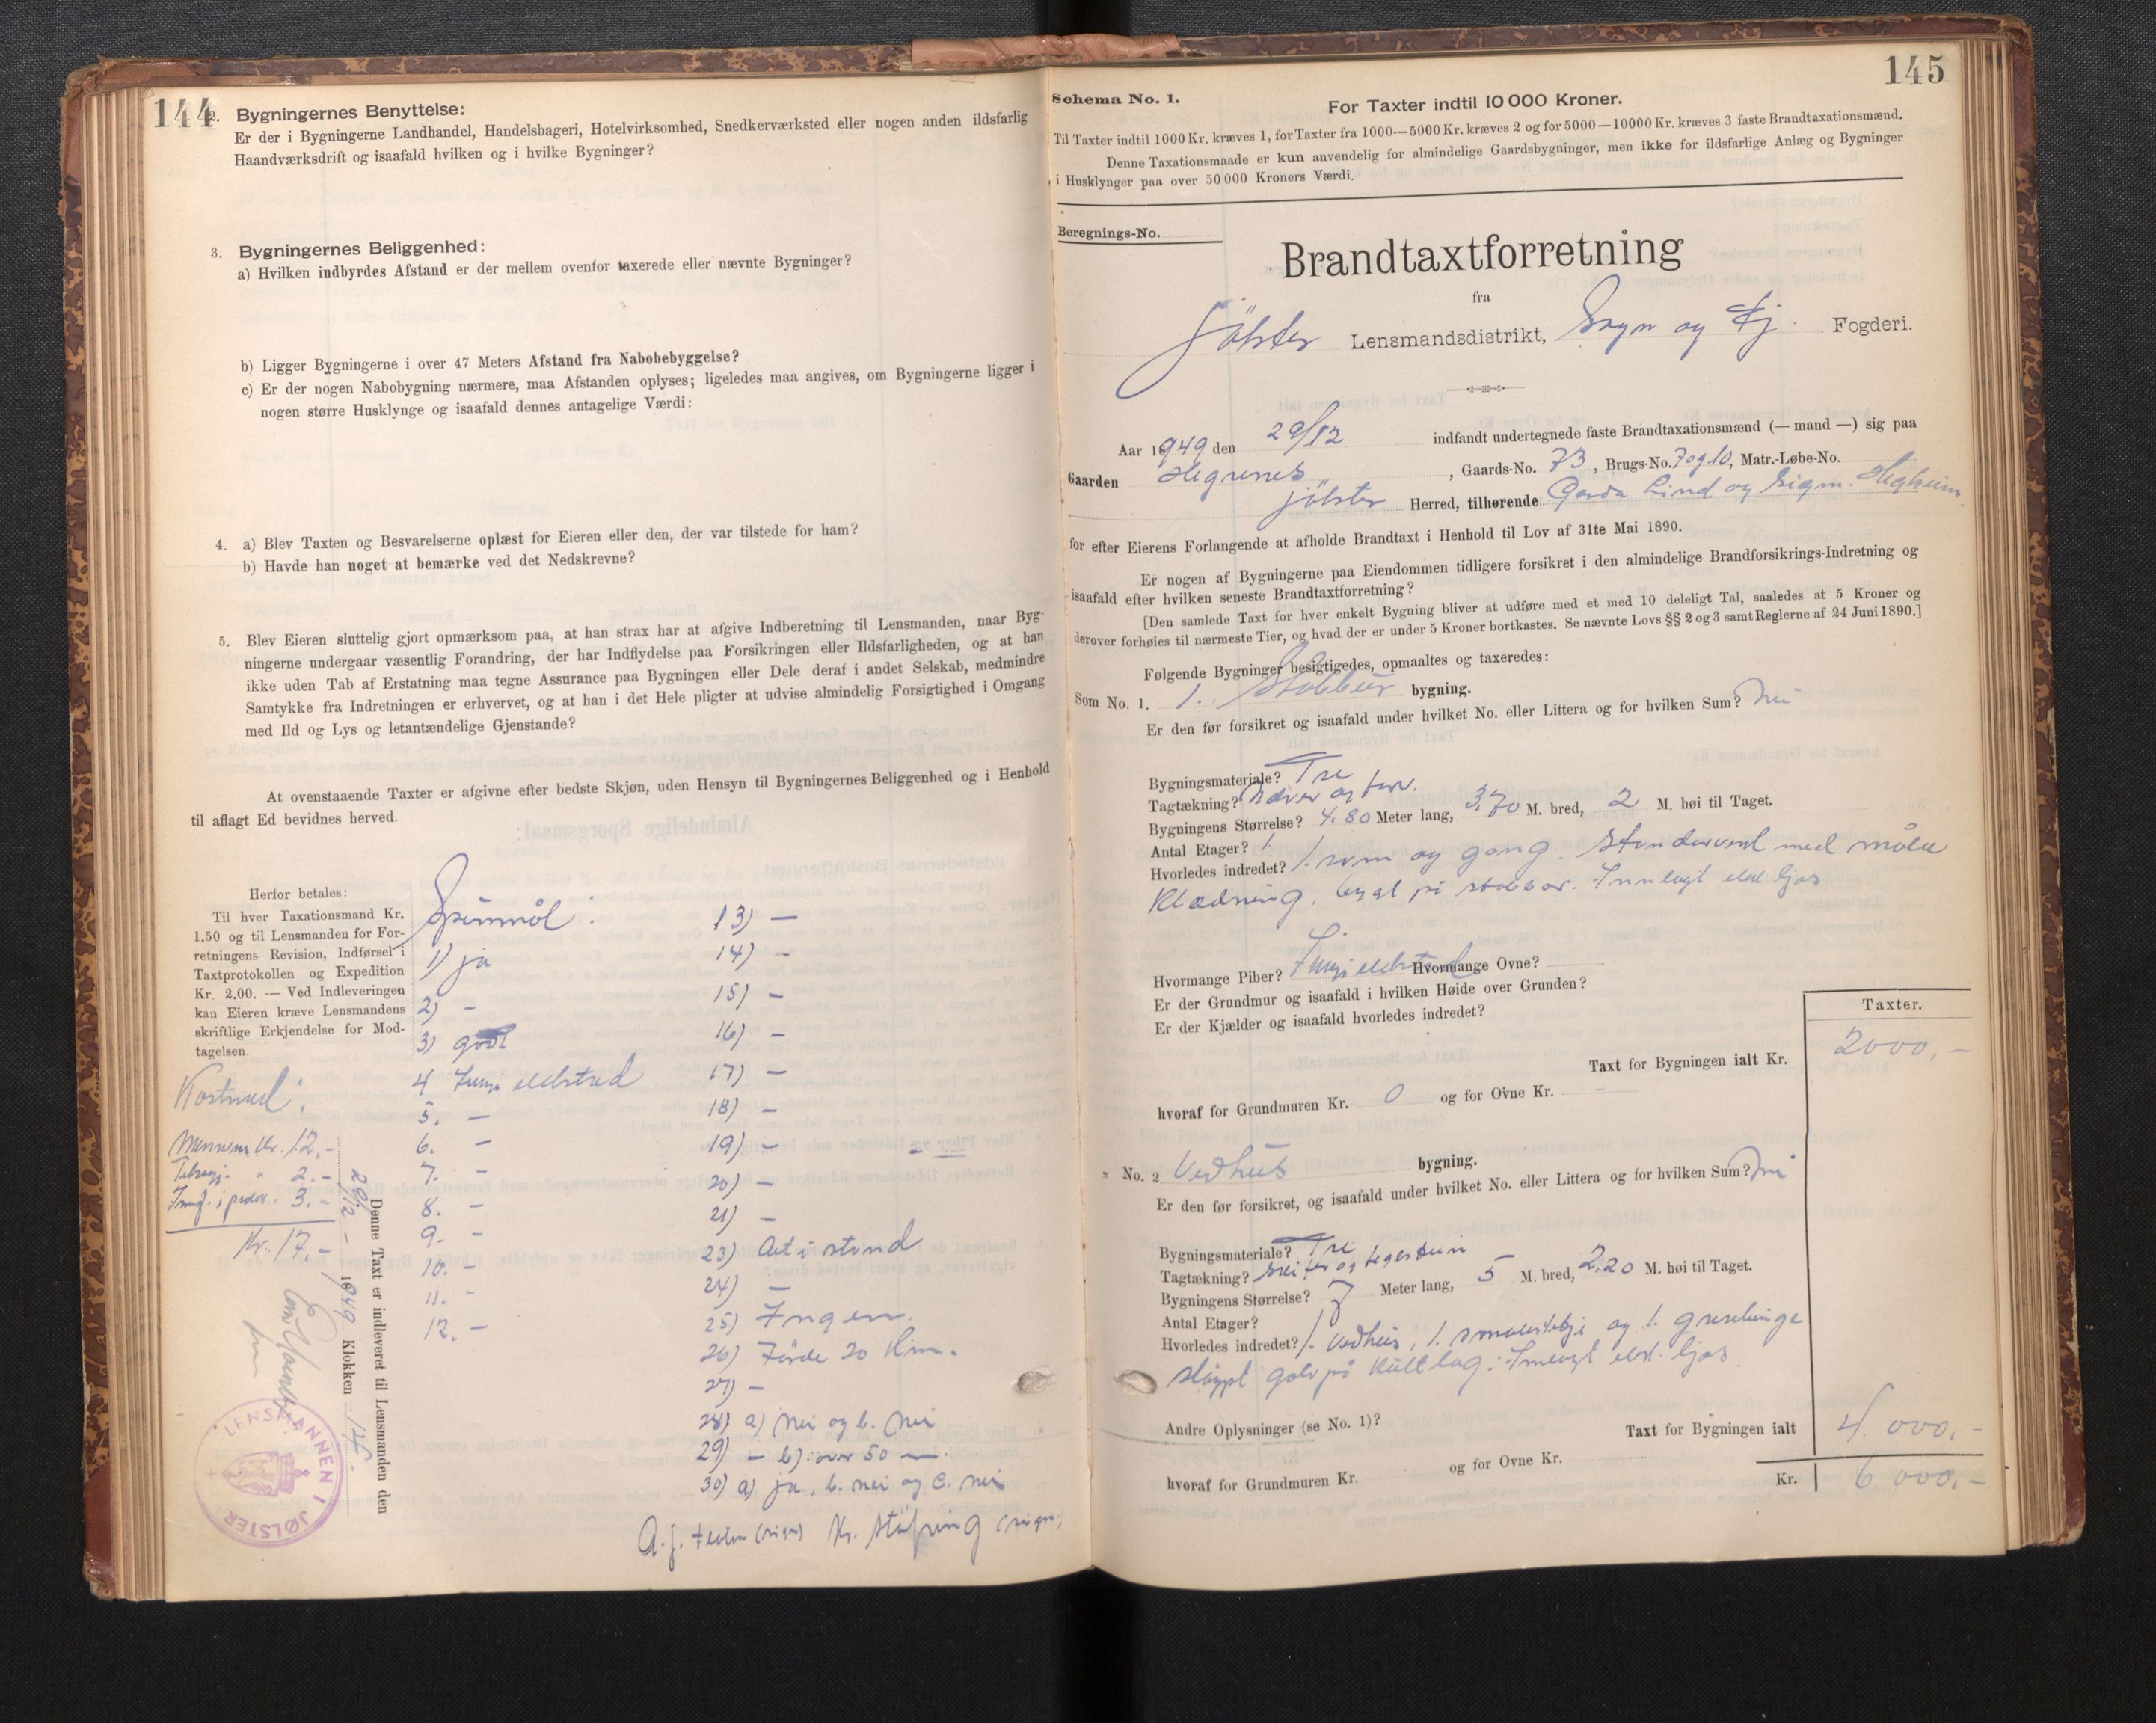 144
2. Bygningernes Benyttelse:
Er der i Bygningerne Landhandel, Handelsbageri, Hotelvirksomhed, Snedkerværksted eller nogen anden ildsfarlig
Haandværksdrift og isaafald hvilken og i hvilke Bygninger?
3. Bygningernes Beliggenhed:
a) Hvilken indbyrdes Afstand er der mellem ovenfor taxerede eller nævnte Bygninger?
b) Ligger Bygningerne i over 47 Meters Afstand fra Nabobebyggelse?
c) Er der nogen Nabobygning nærmere, maa Afstanden oplyses; ligeledes maa angives, om Bygningerne ligger i
nogen større Husklynge og isaafald dennes antagelige Værdi:
4. a) Blev Taxten og Besvarelserne oplæst for Eieren eller den, der var tilstede for ham?
b) Havde han noget at bemærke ved det Nedskrevne?
5. Blev Eieren sluttelig gjort opmærksom paa, at han strax har at afgive Indberetning til Lensmanden, naar Byg-
ningerne undergaar væsentlig Forandring, der har Indflydelse paa Forsikringen eller Ildsfarligheden, og at han
ikke uden Tab af Erstatning maa tegne Assurance paa Bygningen eller Dele deraf i andet Selskab, medmindre
Samtykke fra Indretningen er erhvervet, og at han i det Hele pligter at udvise almindelig Forsigtighed i Omgang
med Ild og Lys og letantændelige Gjenstande?
At ovenstaaende Taxter er afgivne efter bedste Skjøn, uden Hensyn til Bygningernes Beliggenhed og i Henhold
til aflagt Ed bevidnes herved.
Herfor betales:
Til hver Taxationsmand Kr.
1.50 og til Lensmanden for For-
retningens Revision, Indførsel i
Taxtprotokollen og Expedition
Kr. 2.00. — Ved Indleveringen
kan Eieren kræve Lensmandens
skriftlige Erkjendelse for Mod-
tagelsen.
Kostnad:
Mennene kr. 12.-
" 2.-
Innf. i prot. 3.-
Kr. 17.-
Denne Taxt er indleveret til Lensmanden den
29/12 - 1949 Klokken 14.
LENSMANNEN I JØLSTER
Spørsmål:
1) ja
2) -
3) godt
4 Inngi eldstad
5. -
6. -
7. -
8. -
9. -
10. -
11. -
12. -
13) -
14) -
15) -
16) -
17) -
18) -
19) -
20) -
21) -
23) Alt i stand
24) -
25) Ingen.
26) Førde 20 km.
27) -
28) a) nei og b. nei
29) - b) over 50 m.
30) a) ja, b. nei og c. nei
A. J. (sign) Kr. Støfring (sign)
145
Schema No. 1.
For Taxter indtil 10 000 Kroner.
Til Taxter indtil 1000 Kr. kræves 1, for Taxter fra 1000—5000 Kr. kræves 2 og for 5000—10000 Kr. kræves 3 faste Brandtaxationsmænd.
Denne Taxationsmaade er kun anvendelig for almindelige Gaardsbygninger, men ikke for ildsfarlige Anlæg og Bygninger
i Husklynger paa over 50 000 Kroners Værdi.
Beregnings-No.
Brandtaxtforretning
fra
Jölster Lensmandsdistrikt, Sogn og Fj. Fogderi.
Aar 1949 den 29/12 indfandt undertegnede faste Brandtaxationsmænd (— mand —) sig paa
Gaarden Hegrenes, Gaards-No. 73, Brugs-No. 7 og 10, Matr.-Løbe-No.
Jölster Herred, tilhørende Gerda Lind og Sigm. Høgheim
for efter Eierens Forlangende at afholde Brandtaxt i Henhold til Lov af 31te Mai 1890.
Er nogen af Bygningerne paa Eiendommen tidligere forsikret i den almindelige Brandforsikrings-Indretning og
isaafald efter hvilken seneste Brandtaxtforretning?
[Den samlede Taxt for hver enkelt Bygning bliver at udføre med et med 10 deleligt Tal, saaledes at 5 Kroner og
derover forhøies til nærmeste Tier, og hvad der er under 5 Kroner bortkastes. Se nævnte Lovs §§ 2 og 3 samt Reglerne af 24 Juni 1890.]
Følgende Bygninger besigtigedes, opmaaltes og taxeredes:
Som No. 1. 1. Stabbur bygning.
Er den før forsikret og isaafald under hvilket No. eller Littera og for hvilken Sum? Nei
Bygningsmateriale? Tre
Tagtækning? Næver og torv.
Bygningens Størrelse? 4.80 Meter lang, 3.70 M. bred, 2 M. høi til Taget.
Antal Etager? 1
Hvorledes indredet? 1. rom og gang. Standerverk med måla
klædning, bygt på stabbar. Innlagt elek. ljos
Hvormange Piber? Inngi eldstad Hvormange Ovne?
Er der Grundmur og isaafald i hvilken Høide over Grunden?
Er der Kjælder og isaafald hvorledes indredet?
Taxter.
Taxt for Bygningen ialt Kr. 2000,-
hvoraf for Grundmuren Kr. 0 og for Ovne Kr. -
" No. 2. Vedhus bygning.
Er den før forsikret, og isaafald under hvilket No. eller Littera og for hvilken Sum? Nei
Bygningsmateriale? Tre
Tagtækning? Skifer og tegestein
Bygningens Størrelse? 7 Meter lang, 5 M. bred, 2.20 M. høi til Taget.
Antal Etager? 1
Hvorledes indredet? 1. Vedhus, 1. og 1.
støypt golv på kultlag. Innlagt elek. ljos.
Andre Oplysninger (se No. 1)?
Taxt for Bygningen ialt 4.000,-
hvoraf for Grundmuren Kr. og for Ovne Kr.
Kr. 6 000,-